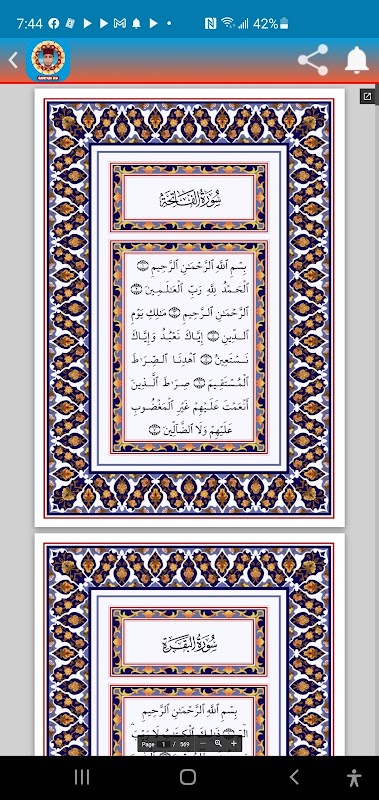 7:44
42%
سُورَةُ الْفَاتِحَةِ
بِسْمِ ٱللَّهِ ٱلرَّحْمَٰنِ ٱلرَّحِيمِ ۝
ٱلْحَمْدُ لِلَّهِ رَبِّ ٱلْعَٰلَمِينَ ۝
ٱلرَّحْمَٰنِ ٱلرَّحِيمِ ۝ مَٰلِكِ يَوْمِ
ٱلدِّينِ ۝ إِيَّاكَ نَعْبُدُ وَإِيَّاكَ
نَسْتَعِينُ ۝ ٱهْدِنَا ٱلصِّرَٰطَ
ٱلْمُسْتَقِيمَ ۝ صِرَٰطَ ٱلَّذِينَ
أَنْعَمْتَ عَلَيْهِمْ غَيْرِ ٱلْمَغْضُوبِ
عَلَيْهِمْ وَلَا ٱلضَّآلِّينَ ۝
سُورَةُ الْبَقَرَةِ
بِسْمِ ٱللَّهِ ٱلرَّحْمَٰنِ ٱلرَّحِيمِ
Page 1 / 569